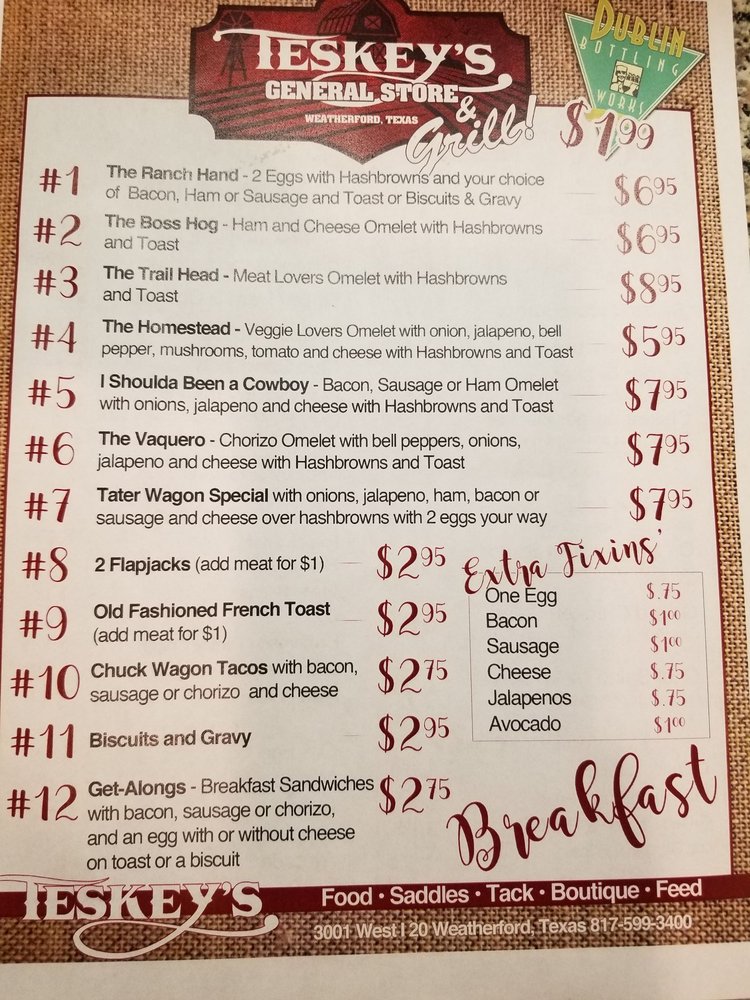 TESKEY'S
GENERAL STORE
WEATHERFORD, TEXAS
& Grill!
DUBLIN
BOTTLING
WORKS
$1.99
#1 The Ranch Hand - 2 Eggs with Hashbrowns and your choice
of Bacon, Ham or Sausage and Toast or Biscuits & Gravy
$6.95
#2 The Boss Hog - Ham and Cheese Omelet with Hashbrowns
and Toast
$6.95
#3 The Trail Head - Meat Lovers Omelet with Hashbrowns
and Toast
$8.95
#4 The Homestead - Veggie Lovers Omelet with onion, jalapeno, bell
pepper, mushrooms, tomato and cheese with Hashbrowns and Toast
$5.95
#5 I Shoulda Been a Cowboy - Bacon, Sausage or Ham Omelet
with onions, jalapeno and cheese with Hashbrowns and Toast
$7.95
#6 The Vaquero - Chorizo Omelet with bell peppers, onions,
jalapeno and cheese with Hashbrowns and Toast
$7.95
#7 Tater Wagon Special with onions, jalapeno, ham, bacon or
sausage and cheese over hashbrowns with 2 eggs your way
$7.95
#8 2 Flapjacks (add meat for $1) $2.95
#9 Old Fashioned French Toast
(add meat for $1)
$2.95
#10 Chuck Wagon Tacos with bacon,
sausage or chorizo and cheese
$2.75
#11 Biscuits and Gravy $2.95
#12 Get-Alongs - Breakfast Sandwiches
with bacon, sausage or chorizo,
and an egg with or without cheese
on toast or a biscuit
$2.75
Extra Fixins'
One Egg $.75
Bacon $1.00
Sausage $1.00
Cheese $.75
Jalapenos $.75
Avocado $1.00
Breakfast
TESKEY'S
Food • Saddles • Tack • Boutique • Feed
3001 West I 20 Weatherford, Texas 817-599-3400